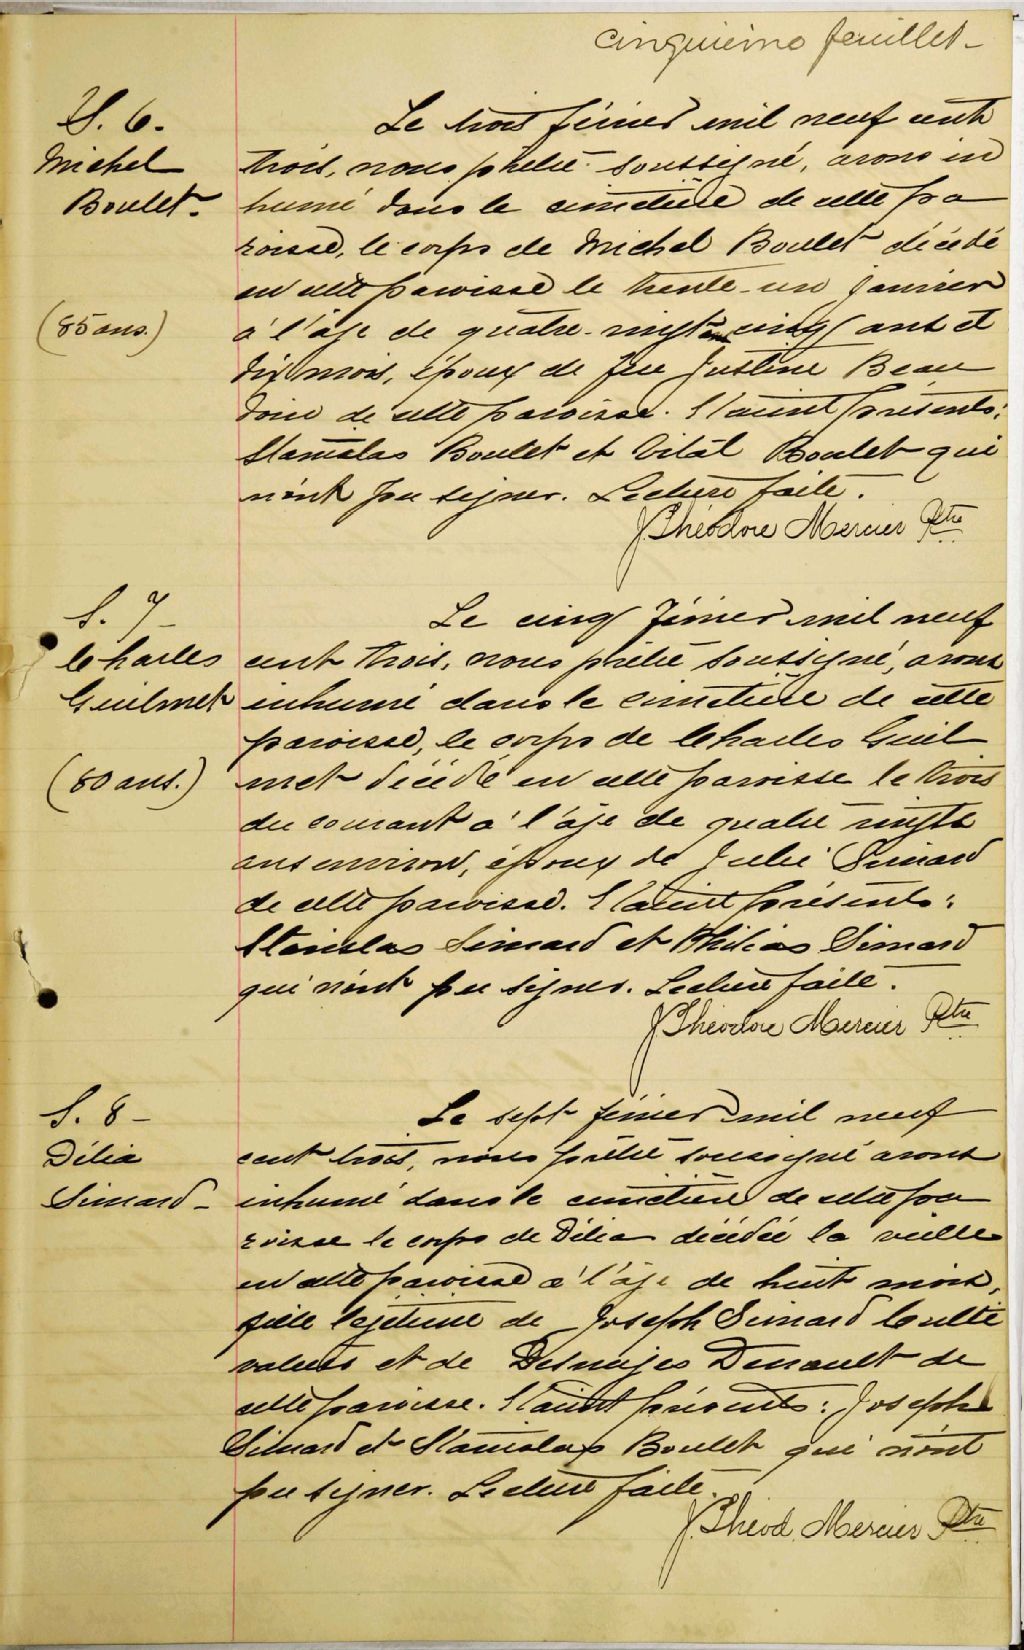 cinquième feuillet-
S. 6.
Michel
Boulet.
(85 ans.)
Le trois février mil neuf cent
trois, nous prêtre soussigné, avons in
humé dans le cimetière de cette pa
roisse, le corps de Michel Boulet décédé
en cette paroisse le trente-un janvier
à l'âge de quatre-vingt cinq ans et
dix mois, époux de feu Justine Beau
doin de cette paroisse. Etaient présents:
Stanislas Boulet et Vital Boulet qui
n'ont pu signer. Lecture faite.
J Théodore Mercier Ptre
S. 7-
Charles
Guilmet
(80 ans.)
Le cinq février mil neuf
cent trois, nous prêtre soussigné, avons
inhumé dans le cimetière de cette
paroisse, le corps de Charles Guil
met décédé en cette paroisse le trois
du courant à l'âge de quatre vingts
ans environ, époux de Julie Simard
de cette paroisse. Etaient présents:
Stanislas Simard et Philias Simard
qui n'ont pu signer. Lecture faite.
J Théodore Mercier Ptre
S. 8-
Délia
Simard-
Le sept février mil neuf
cent trois, nous prêtre soussigné avons
inhumé dans le cimetière de cette pa
roisse le corps de Délia décédée la veille
en cette paroisse à l'âge de huit mois,
fille légitime de Joseph Simard Culti
vateur et de Desneiges Denault de
cette paroisse. Etaient présents: Joseph
Simard et Stanislas Boulet qui n'ont
pu signer. Lecture faite.
J. Théod. Mercier Ptre